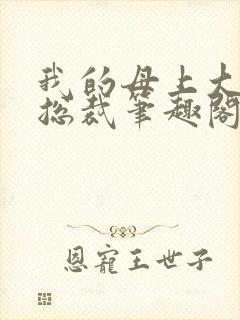 我的母上大
总裁笔趣阁
恩宠王世子